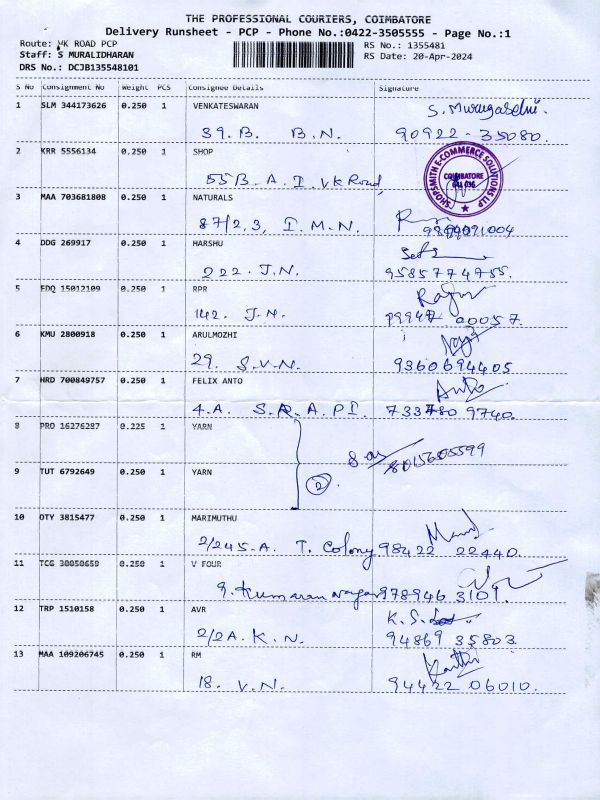 THE PROFESSIONAL COURIERS, COIMBATORE
Delivery Runsheet - PCP - Phone No.:0422-3505555 - Page No.:1
Route: VK ROAD PCP RS No.: 1355481
Staff: S MURALIDHARAN RS Date: 20-Apr-2024
DRS No.: DCJB135548101
S No Consignment No Weight PCS Consignee Details Signature
1 SLM 344173626 0.250 1 VENKATESWARAN
39. B. B. N. 90922-35080
2 KRR 5556134 0.250 1 SHOP
55B. A. I. VK Road,
SHOPSMITH E-COMMERCE SOLUTIONS LLP
COIMBATORE
3 MAA 703681808 0.250 1 NATURALS
87/2,3, I. M. N.
4 DDG 269917 0.250 1 HARSHU
222. J.N. 9585774755.
5 EDQ 15012109 0.250 1 RPR
142. J.N. 00057.
6 KMU 2800918 0.250 1 ARULMOZHI
29. S.V.N. 9360694405
7 HRD 700849757 0.250 1 FELIX ANTO Anto
4.A 9740.
8 PRO 16276287 0.225 1 YARN
8015605599
9 TUT 6792649 0.250 1 YARN
2
10 OTY 3815477 0.250 1 MARIMUTHU
2/245-A. T. Colony 98422 22440.
11 TCG 1 V FOUR
9. Kumaran nagar 978946 3101.
12 TRP 1510158 0.250 1 AVR K. S.
2/2A. K. N. 94869 35803
13 MAA 109206745 0.250 1 RM
18. V.N. 94422 06010.